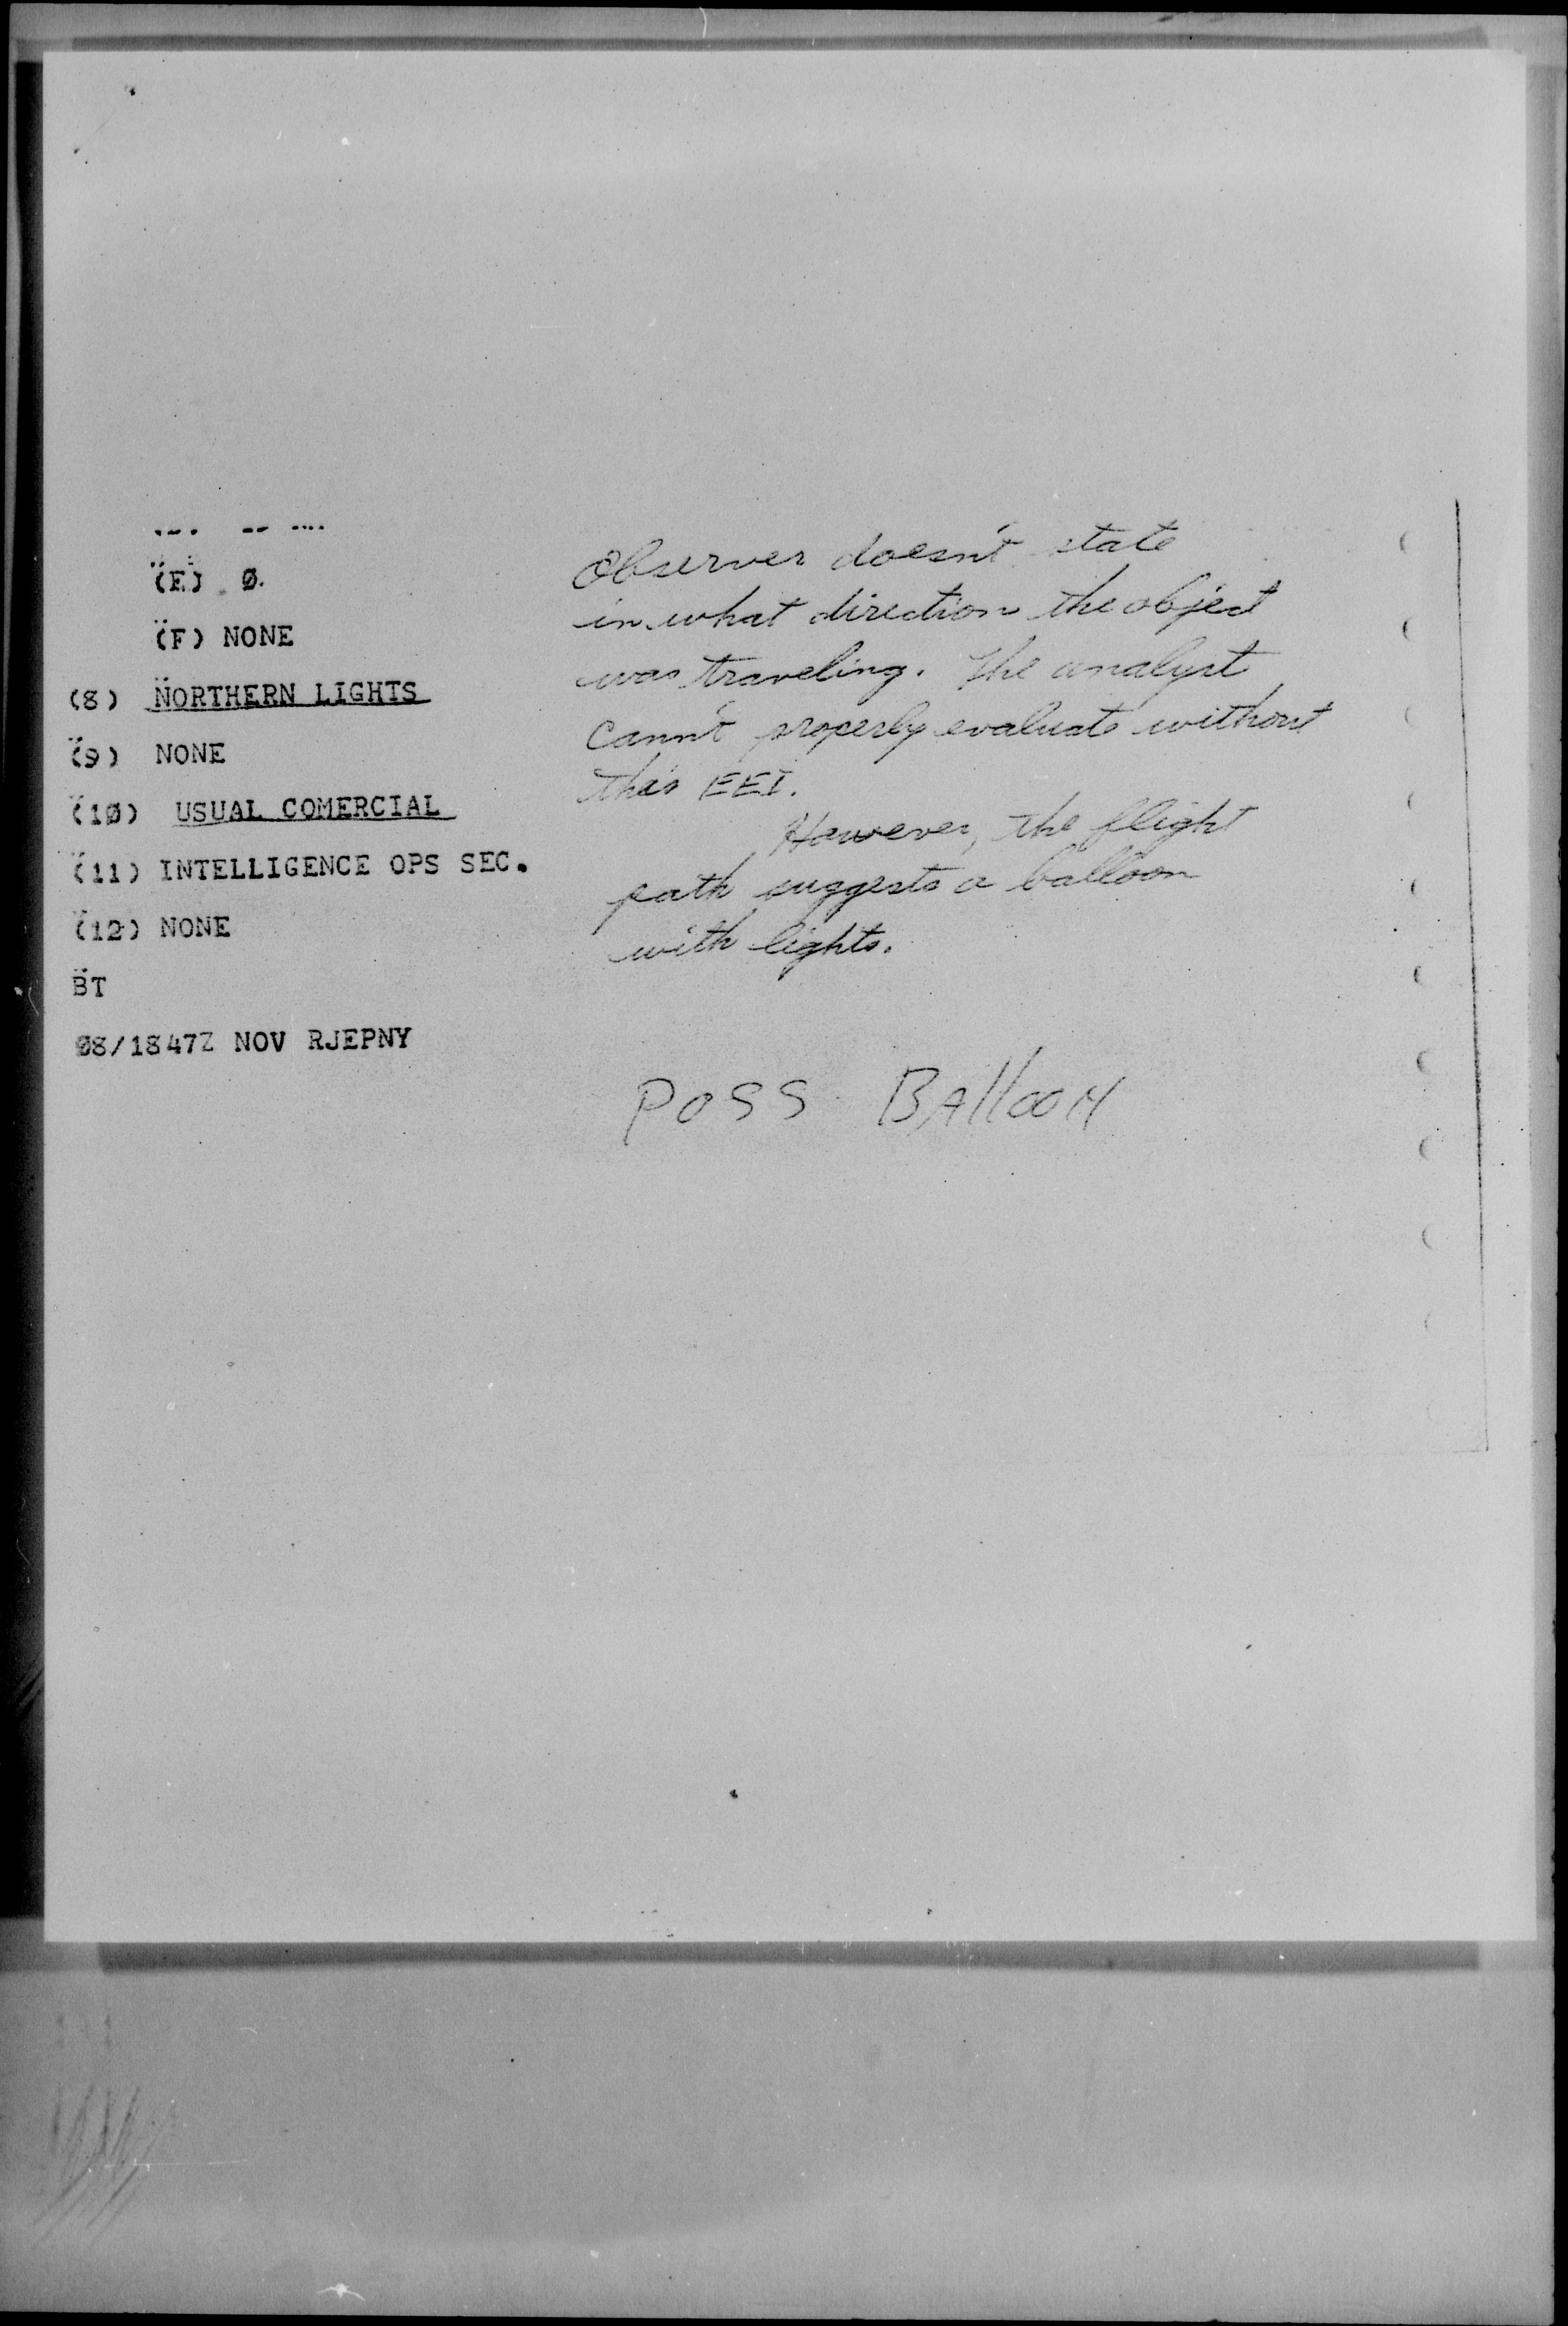 (E) Ø.
(F) NONE
(8) NORTHERN LIGHTS
(9) NONE
(1Ø) USUAL COMERCIAL
(11) INTELLIGENCE OPS SEC.
(12) NONE
BT
Ø8/1847Z NOV RJEPNY
Observer doesn't state
in what direction the object
was traveling. The analyst
cann't properly evaluate without
this EEI.
However, the flight
path suggests a balloon
with lights.
POSS BAllooN